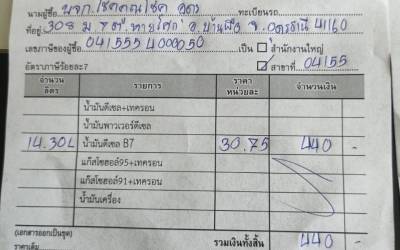 นามผู้ซื้อ หจก.โชคคณโชค อุดร ทะเบียนรถ
ที่อยู่ 308 ม.7 ต.หายโศก อ.บ้านผือ จ.อุดรธานี 41160
เลขภาษีของผู้ซื้อ 041555400050 เป็น สำนักงานใหญ่
อัตราภาษีร้อยละ7 ✓ สาขาที่ 04155
จำนวนลิตร รายการ ราคาหน่วยละ จำนวนเงิน
น้ำมันดีเซล+เทครอน
น้ำมันพาวเวอร์ดีเซล
14.30L น้ำมันดีเซล B7 30.75 440 -
แก๊สโซฮอล์95+เทครอน
แก๊สโซฮอล์91+เทครอน
น้ำมันเครื่อง
(เอกสารออกเป็นชุด)
ราคาเต็ม รวมเงินทั้งสิ้น 440 -